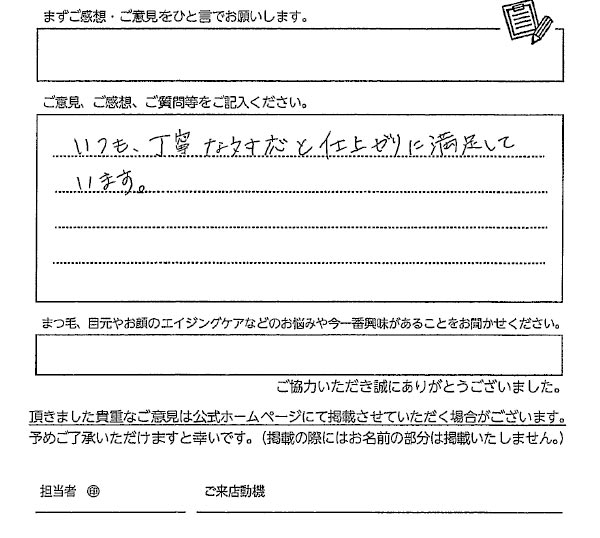 まずご感想・ご意見をひと言でお願いします。
ご意見、ご感想、ご質問等をご記入ください。
いつも、丁寧な対応と仕上がりに満足して
います。
まつ毛、目元やお顔のエイジングケアなどのお悩みや今一番興味があることをお聞かせください。
ご協力いただき誠にありがとうございました。
頂きました貴重なご意見は公式ホームページにて掲載させていただく場合がございます。
予めご了承いただけますと幸いです。（掲載の際にはお名前の部分は掲載いたしません。）
担当者 ㊞ ご来店動機